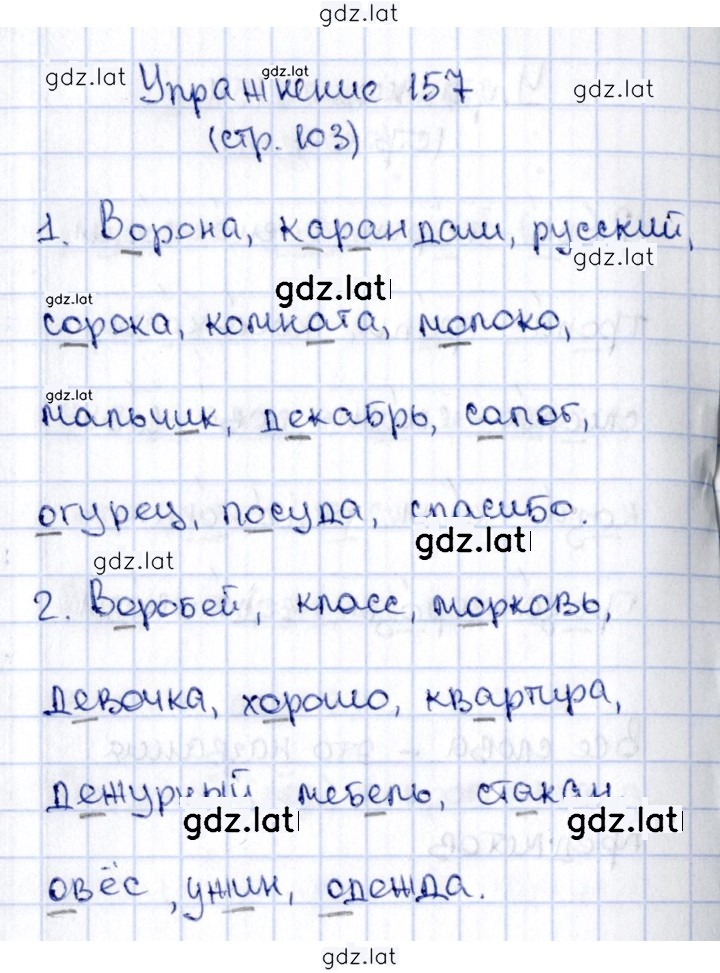 gdz.lat
gdz.lat gdz.lat gdz.lat
Упражнение 157
(стр. 103)
1. Ворона, карандаш, русский,
gdz.lat
gdz.lat gdz.lat
сорока, комната, молоко,
gdz.lat
мальчик, декабрь, сапог,
огурец, посуда, спасибо.
gdz.lat gdz.lat
2. Воробей, класс, морковь,
девочка, хорошо, квартира,
дежурный мебель, стакан
gdz.lat gdz.lat
овёс, ужин, одежда.
gdz.lat